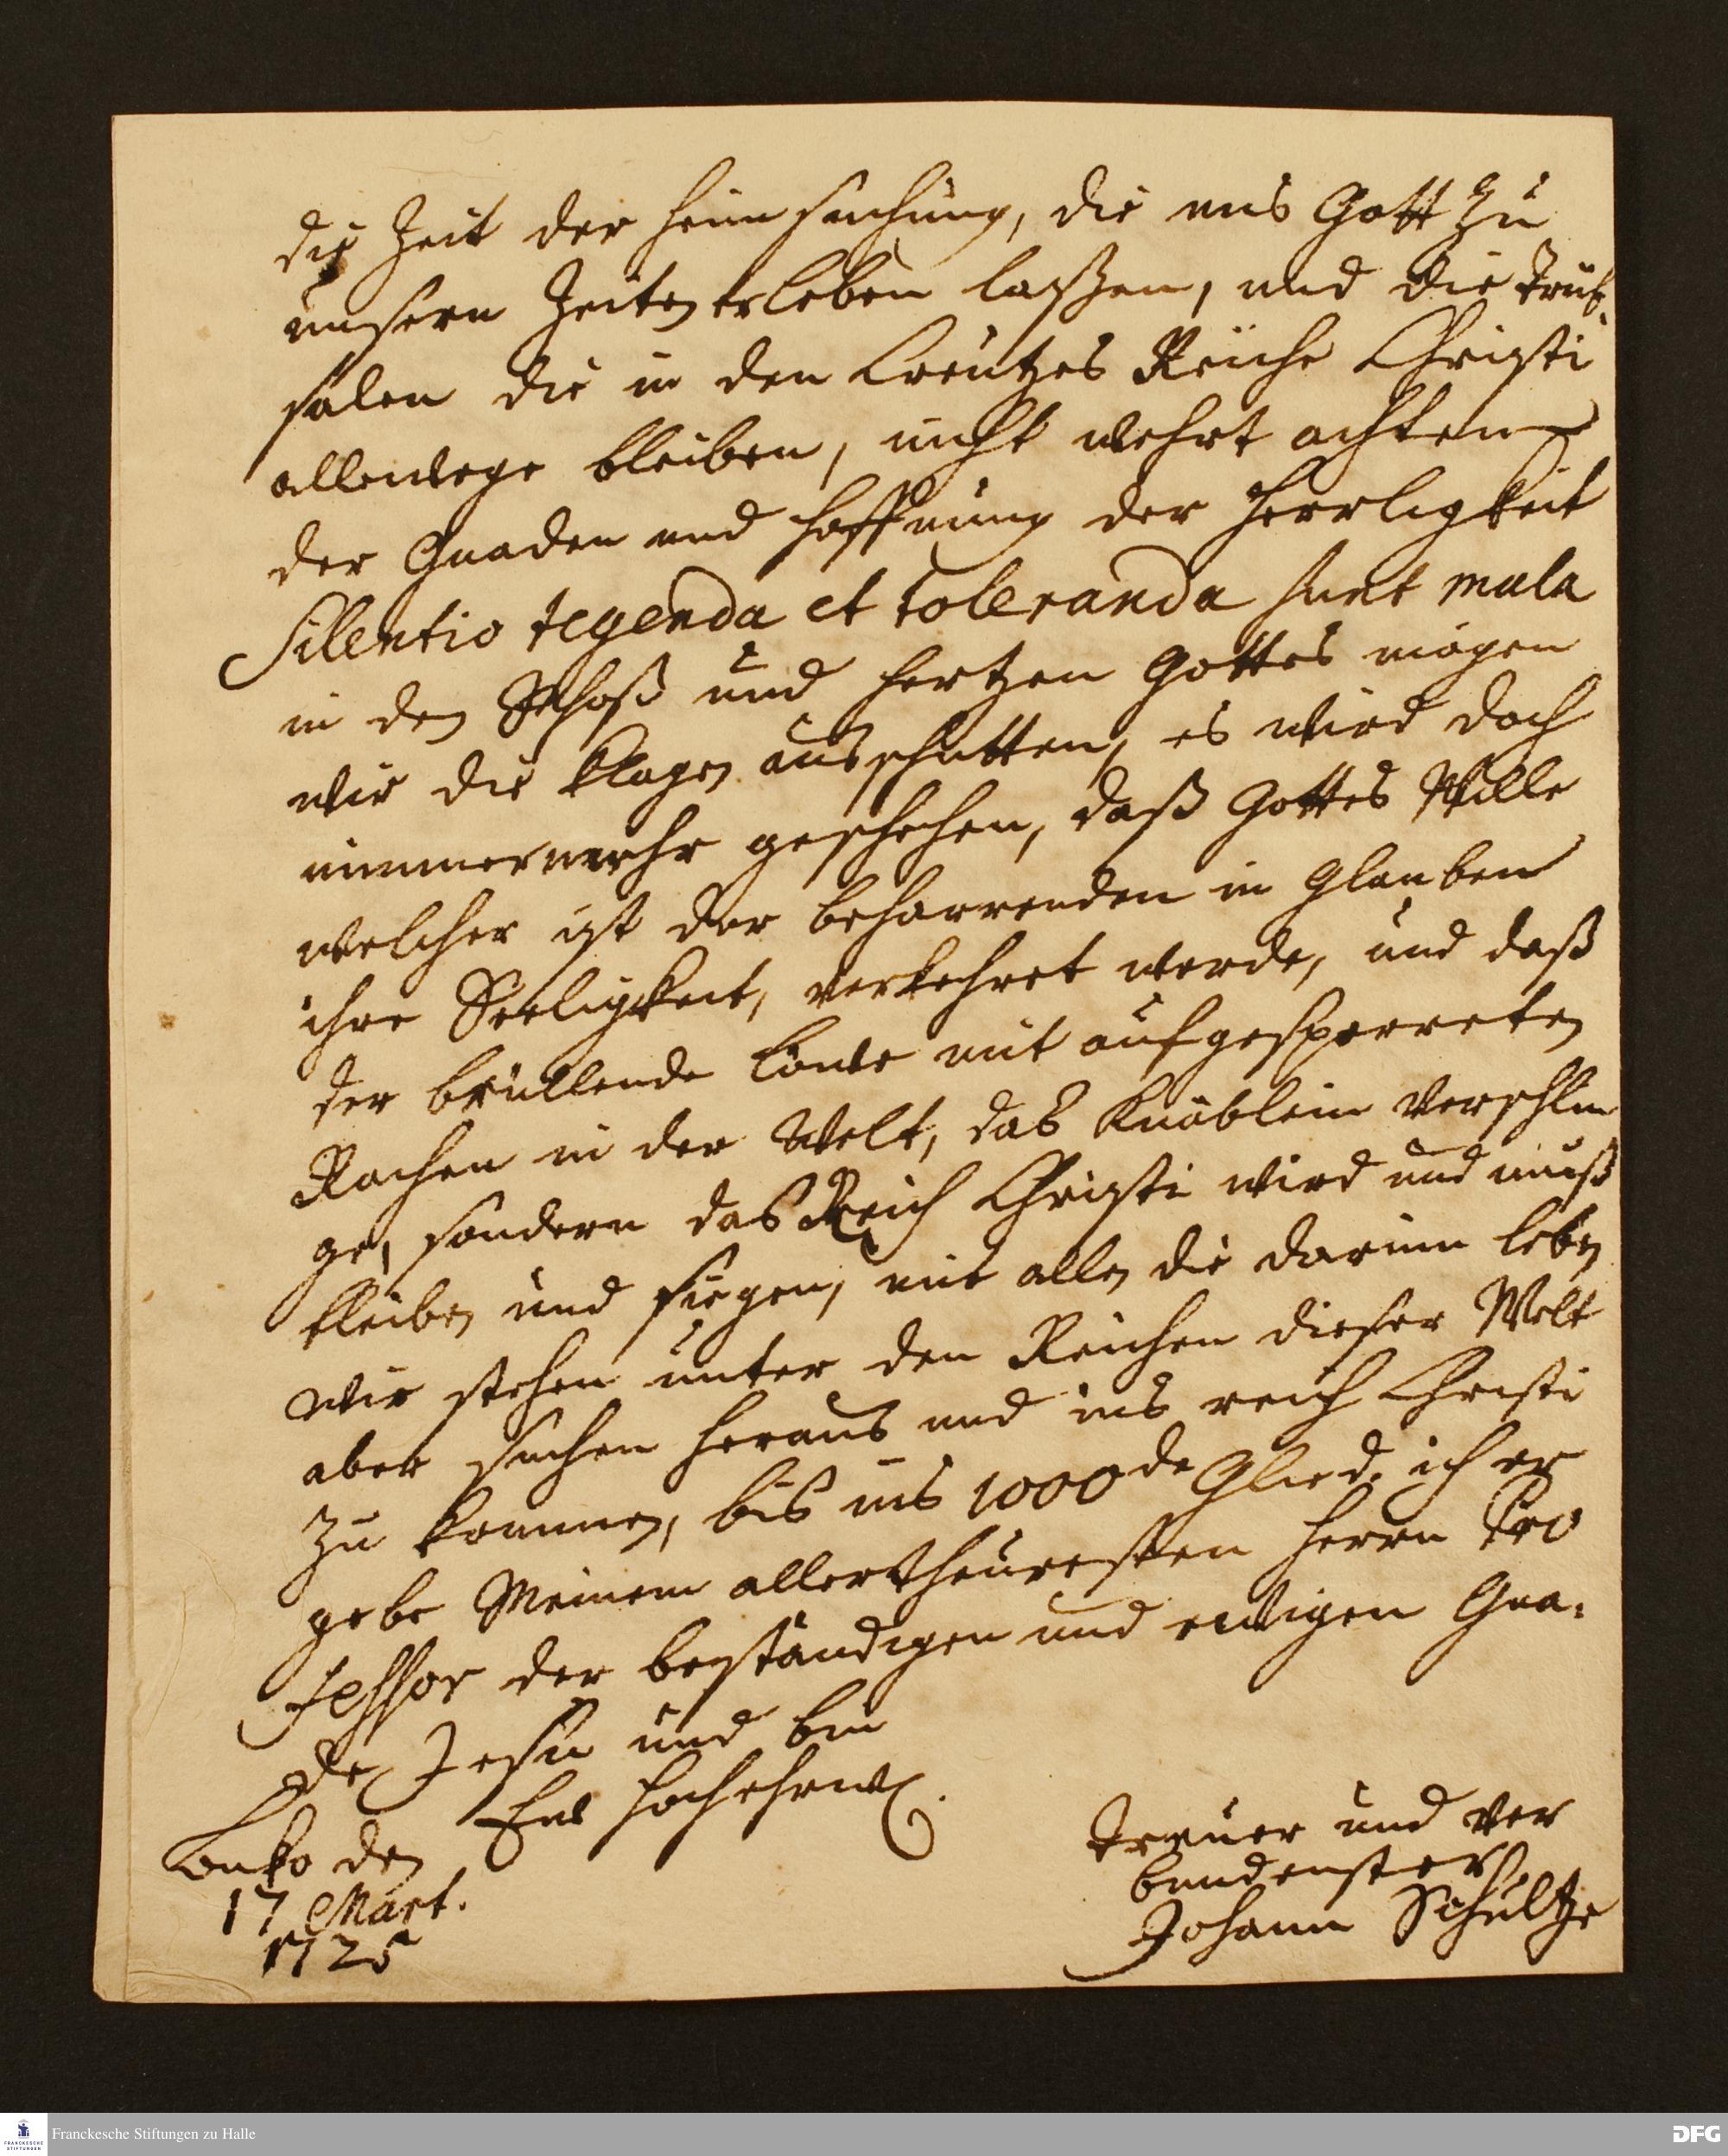 die Zeit der Heimsuchung, die uns Gott zu
unsern Zeiten erleben laßen, und die Trüb-
salen die in den Creutzes Reiche Christi
allewege bleiben, nicht wehrt achten
der Gnaden und Hoffnung der Herrligkeit
Silentio tegenda et toleranda sunt mala
in den Schoß und Hertzen Gottes mögen
wir die klagen ausschütten, es wird doch
nimmermehr geschehen, daß Gottes Wille
welcher ist der beharrenden in Glauben
ihre Seeligkeit, verkehret werde, und daß
der brüllende Löwe mit aufgesperreten
Rachen in der Welt, das Knäblein verschlin
ge, sondern das Reich Christi wird und muß
bleiben und siegen, mit allen die darinn leben
wir stehen unter den Reichen dieser Welt
aber suchen heraus und ins reich Christi
zu kommen, bis ins 1000de Glied. ich er
gebe Meinem allertheuresten Herrn Pro
fessor der beständigen und ewigen Gna-
de Jesu und bin
Ew Hochehrw.
treuer und ver
bundenster
Johann Schultze
den
17 Mart.
1725
Franckesche Stiftungen zu Halle
FRANCKESCHE
STIFTUNGEN
DFG